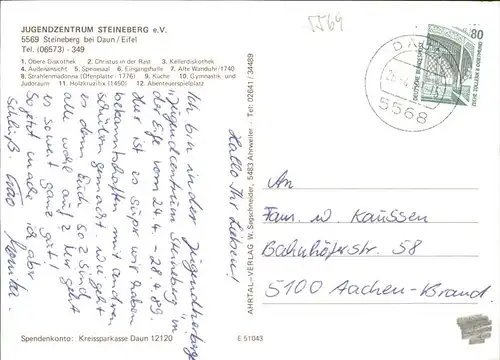 JUGENDZENTRUM STEINEBERG e.V.
5569 Steineberg bei Daun/Eifel
Tel. (06573) - 349
1. Obere Diskothek 2. Christus in der Rast 3. Kellerdiskothek
4. Außenansicht 5. Speisesaal 6. Eingangshalle 7. Alte Wanduhr 1740
8. Strahlenmadonna (Ofenplatte : 1776) 9. Küche 10. Gymnastik und
Judoraum 11. Holzkruzifix (1450) 12. Abenteuerspielplatz
5569
5568
80
DEUTSCHE BUNDESPOST
ZECHE ZOLLERN II DORTMUND
Hallo Ihr Lieben!
Ich bin in der Jugendherberge
"Jugendzentrum Steineberg" in
der Eifel vom 24.4. - 28.4.89.
Hier ist es super wir haben
bekanntschaften mit anderen
Schülern gemacht. wie geht
es denn Euch so? Sind
alle wohl auf? Mir geht
es so weit ganz gut!
So jetzt mache ich aber
Schluß. Ciao
AHRTAL-VERLAG W. Segschneider, 5483 Ahrweiler - Tel: 02641 / 34489
An
Fam. W. Kaussen
Bahnhöferstr. 58
5100 Aachen-Brand
Spendenkonto: Kreissparkasse Daun 12120
E 51043